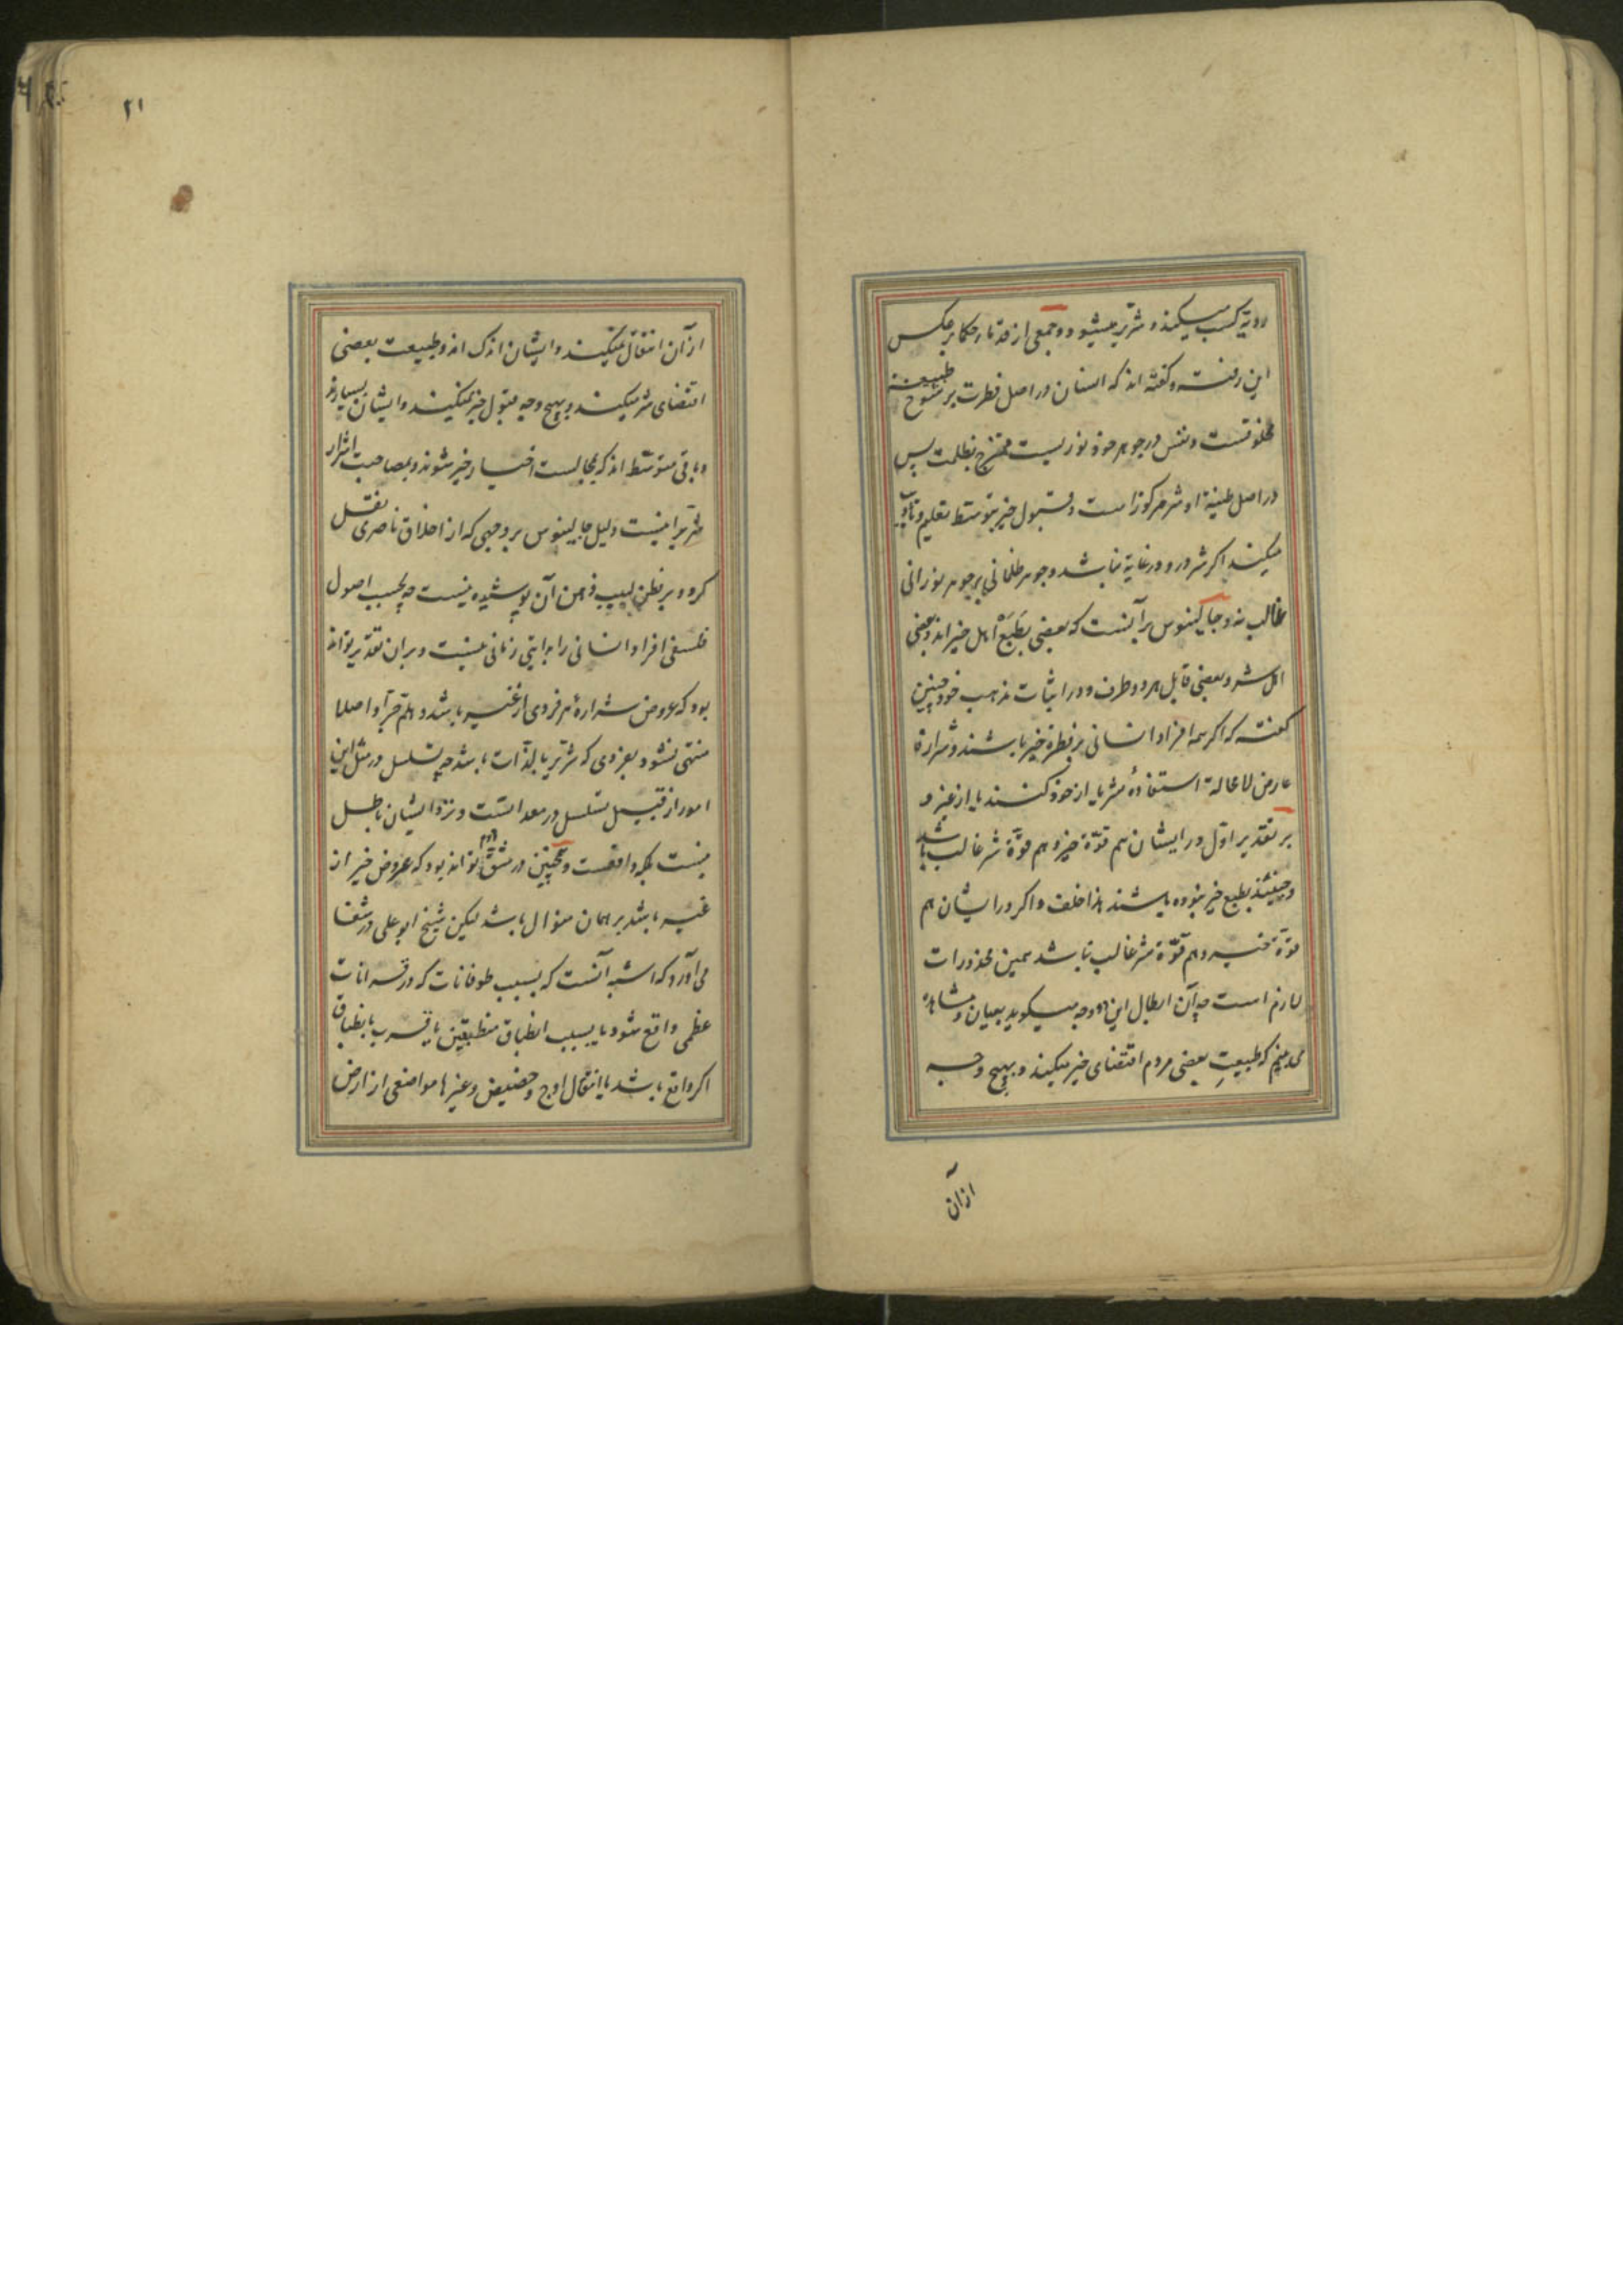 ردیه کسب میکند و شریر میشود و جمعی از قدماء حکما بر عکس
این رفته و گفته اند که انسان در اصل فطرت بر شوخ طبیعت
مخلوقست و نفس در جوهر خود نوریست ممتزج بظلمت پس
در اصل طینة او شر مرکوز است و قبول خیر بتوسط تعلیم و تادیب
میکند اگر شر در و در غایة نباشد و جوهر ظلمانی بر جوهر نورانی
غالب نه و جالینوس بر آنست که بعضی بطبع اهل خیر اند و بعضی
اهل شر و بعضی قابل هر دو طرف و در اثبات مذهب خود چنین
گفته که اگر همه افراد انسانی بر فطرة خیر باشند و شرارة
عارض لا محالة استفادۀ شر یا از خود کنند یا از غیر و
بر تقدیر اول در ایشان هم قوّة خیر و هم قوّة شر غالب باشد
و حینئذ بطبع خیر نبوده باشند هذا خلف و اگر در ایشان هم
قوّة خیر و هم قوّة شر غالب باشد همین محذورات
لازم است چه آن ابطال این دو وجه میگوید بعیان و مشاهده
می بینم که طبیعتِ بعضی مردم اقتضای خیر میکند و بهیچ وجه
از آن
۲۱
از آن انتقال نمیکنند و ایشان اندک اند و طبیعت بعضی
اقتضای شر میکند و بهیچ وجه قبول خیر نمیکنند و ایشان بسیارند
و باقی متوسّط اند که بمجالست اخیار خیر شوند و بمصاحبت اشرار
شریر اینست دلیل جالینوس بر وجهی که از اخلاق ناصری نقل
کرد و بر فطن لبیب وهن آن پوشیده نیست چه بحسب اصول
فلسفی افراد انسانی را بدایتی زمانی نیست و بران تقدیر تواند
بود که عروض شرارۀ هر فردی از غیر باشد و هلم جرّا و اصلا
منتهی نشود بفردی که شریر بالذّات باشد چه تسلسل در مثل این
امور از قبیل تسلسل در معدّاتست و نزد ایشان باطل
نیست بلکه واقعست و همچنین در شقّ دوم تواند بود که عروض خیر از
غیر باشد بر همان منوال باشد لیکن شیخ ابو علی در شفا
می آورد که اشبه آنست که بسبب طوفانات که در قرانات
عظمی واقع شود یا بسبب انطباق منطقتین یا قریب بانطباق
اگر واقع باشد یا انتقال اوج و حضیض و غیرها مواضعی از ارض